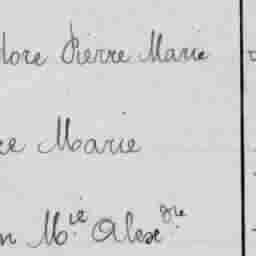 dore Pierre Marie
ce Marie
n M.ie Alex.dre